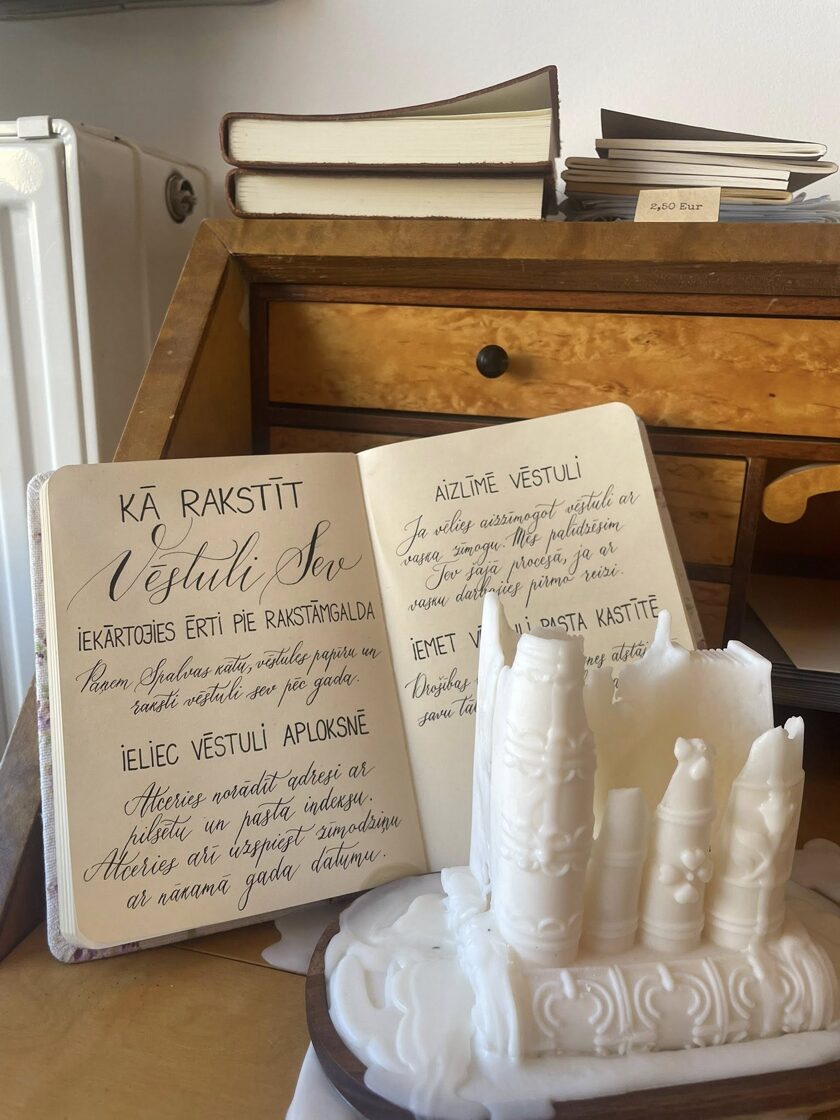 2,50 Eur
KĀ RAKSTĪT
Vēstuli Sev
IEKĀRTOJIES ĒRTI PIE RAKSTĀMGALDA
Paņem Spalvas kātu, vēstules papīru un
raksti vēstuli sev pēc gada.
IELIEC VĒSTULI APLOKSNĒ
Atceries norādīt adresi ar
pilsētu un pasta indeksu.
Atceries arī uzspiest zīmodziņu
ar nākamā gada datumu.
AIZLĪMĒ VĒSTULI
Ja vēlies aizzīmogot vēstuli ar
vaska zīmogu. Mēs palīdzēsim
Tev šajā procesā, ja ar
vasku darbojies pirmo reizi.
IEMET PASTA KASTĪTĒ
Drošības
savu